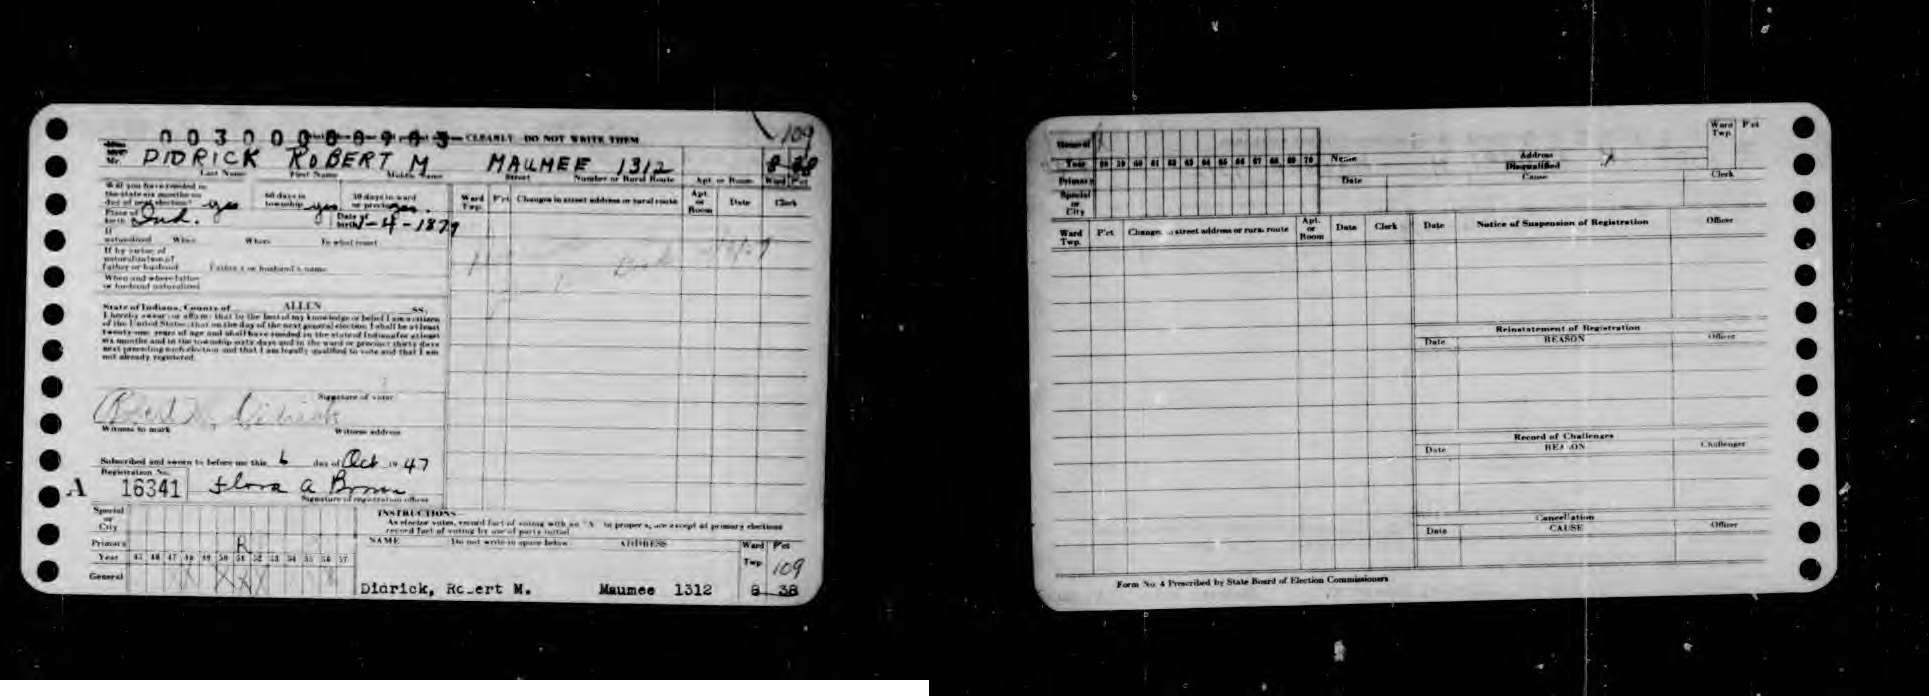 0030000 CLEARLY DO NOT WRITE THEM 109
Mr. DIDRICK ROBERT M MAUMEE 1312 8 38
Last Name First Name Middle Name Street Number or Rural Route Apt. or Room Ward P'ct
Will you have resided in
the state six months on
day of next election? yes
60 days in
township yes
30 days in ward
or precinct yes.
Place of
birth Ind.
Date of
birth 1-4-1879
If
naturalized When Where To what court
If by virtue of
naturalization of
father or husband Father's or husband's name
When and where father
or husband naturalized
Ward
Twp. P'ct Changes in street address or rural route Apt.
or
Room Date Clerk
State of Indiana, County of ALLEN SS.
I hereby swear or affirm that to the best of my knowledge or belief I am a citizen
of the United States; that on the day of the next general election I shall be at least
twenty-one years of age and shall have resided in the state of Indiana for at least
six months and in the township sixty days and in the ward or precinct thirty days
next preceding such election and that I am legally qualified to vote and that I am
not already registered.
Robert M. Didrick
Signature of voter
Witness to mark Witness address
Subscribed and sworn to before me this 6 day of Oct 1947
Registration No.
A 16341 Flora A Brown
Signature of registration officer
Special
or
City
Primary R
Year 45 46 47 48 49 50 51 52 53 54 55 56 57
General X X X X X
INSTRUCTIONS
As elector votes, record fact of voting with an "X" in proper space except at primary elections
record fact of voting by use of party initial
NAME Do not write in space below ADDRESS Ward
Twp P'ct
109
Didrick, Robert M. Maumee 1312 8 38
General
Year 58 59 60 61 62 63 64 65 66 67 68 69 70
Primary
Special
or
City
Name Address Ward
Twp. P'ct
Disqualified
Date Cause Clerk
Ward
Twp. P'ct Changes in street address or rural route Apt.
or
Room Date Clerk
Date Notice of Suspension of Registration Officer
Reinstatement of Registration
Date REASON Officer
Record of Challenges
Date REASON Challenger
Cancellation
Date CAUSE Officer
Form No. 4 Prescribed by State Board of Election Commissioners